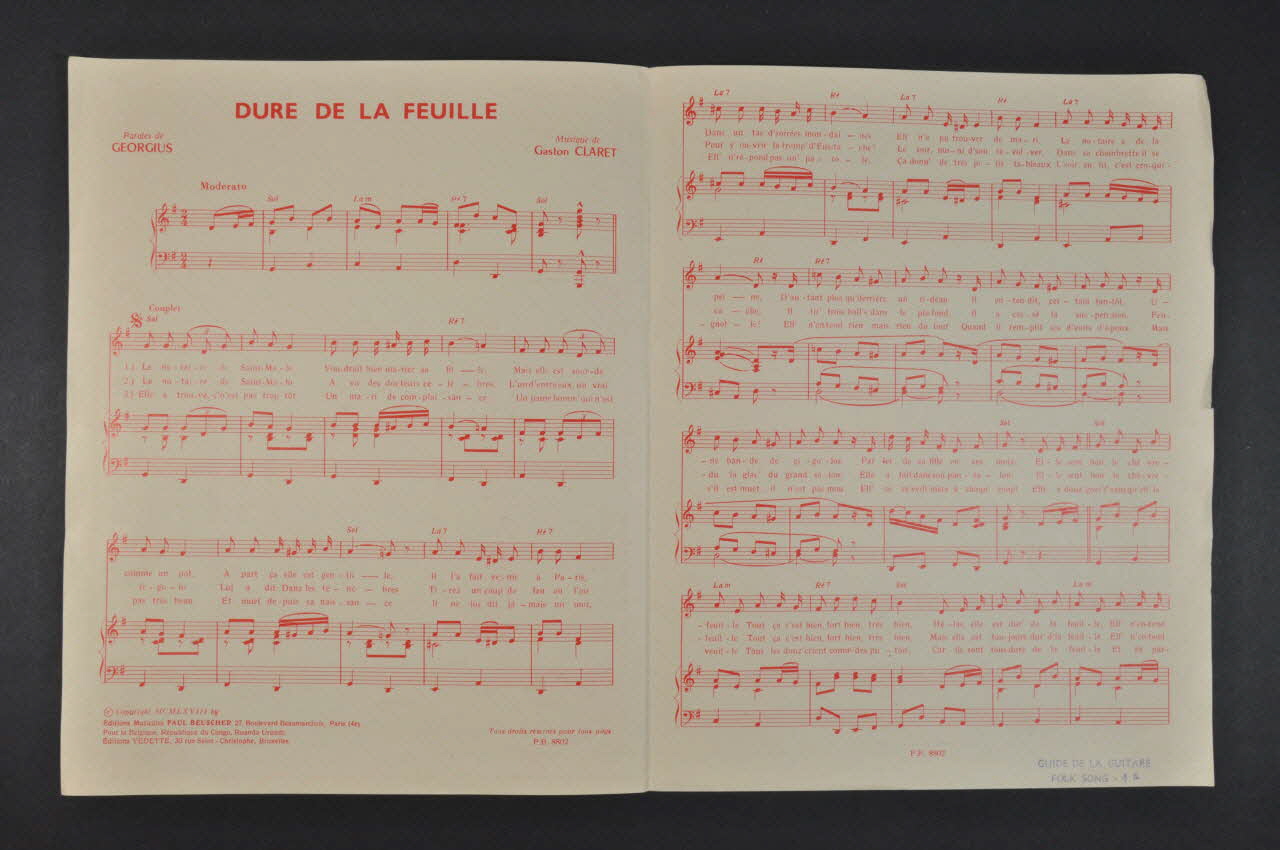 DURE DE LA FEUILLE
Paroles de
GEORGIUS
Musique de
Gaston CLARET
Moderato
Sol Lam Ré7 Sol
Couplet
Sol Ré7
1.) Le no-tai-re de Saint-Ma-lo Vou-drait bien ma-rier sa fil-le, Mais elle est sour-de
2.) Le no-tai-re de Saint-Ma-lo A vu des doc-teurs cé-lè-bres, L'un d'entre eux, un vrai
3.) Elle a trou-vé, c'n'est pas trop tôt Un ma-ri de com-plai-san-ce Un jeune homm' qui n'est
Sol La7 Ré7
comme un pot, À part ça elle est gen-til-le, Il l'a fait ve-nir à Pa-ris,
ri-go-lo Lui a dit: Dans les té-nè-bres Ti-rez un coup de feu au l'air
pas très beau Et muet de-puis sa nais-san-ce Il ne lui dit ja-mais un mot,
© Copyright MCMLXVIII by
Éditions Musicales PAUL BEUSCHER 27, Boulevard Beaumarchais, Paris (4e)
Pour la Belgique, République du Congo, Ruanda-Urundi:
Éditions VEDETTE, 30 rue Saint-Christophe, Bruxelles.
Tous droits réservés pour tous pays
P.B. 8802
La7 Ré La7 Ré La7
Dans un tas d'soirées mon-dai-nes Ell' n'a pu trou-ver de ma-ri. Le no-taire a de la
Pour y ou-vrir la tromp' d'Eus-ta-che! Le soir, mu-ni d'son re-vol-ver, Dans sa chambrette il se
Ell' n'ré-pond pas un' pa-ro-le, Ça donn' de très jo-lis ta-bleaux L'soir, au lit, c'est cro-qui-
Ré Ré7
pei-ne, D'au-tant plus qu'derrière un ri-deau Il en-ten-dit, cer-tain tan-tôt, U-
ca-che, Il tir' trois ball's dans le pla-fond, Il a cas-sé la sus-pen-sion, Pen-
gnol-le! Ell' n'en-tend rien mais rien du tout Quand il rem-plit ses d'voirs d'é-poux Mais
Sol Sol
-ne ban-de de gi-go-los Par-ler de sa fille en ces mots: El-le sent bon le chè-vre-
-du la glac' du grand sa-lon Elle a fait dans son pan-ta-lon: El-le sent bon le chè-vre-
s'il est muet, il n'est pas mou
Lam Ré7 Sol Lam
-feuil-le Tout ça c'est bien, fort bien, très bien, Hé-las, elle est dur' de la feuil-le, Ell' n'en-tend
-feuil-le Tout ça c'est bien, fort bien, très bien, Mais elle est tou-jours dur' d'la feuil-le, Ell' n'en-tend
veuil-le Tous les deux Car ils sont tous durs de la feuil-le Et ne par-
P.B. 8802
GUIDE DE LA GUITARE
FOLK SONG - 4 €